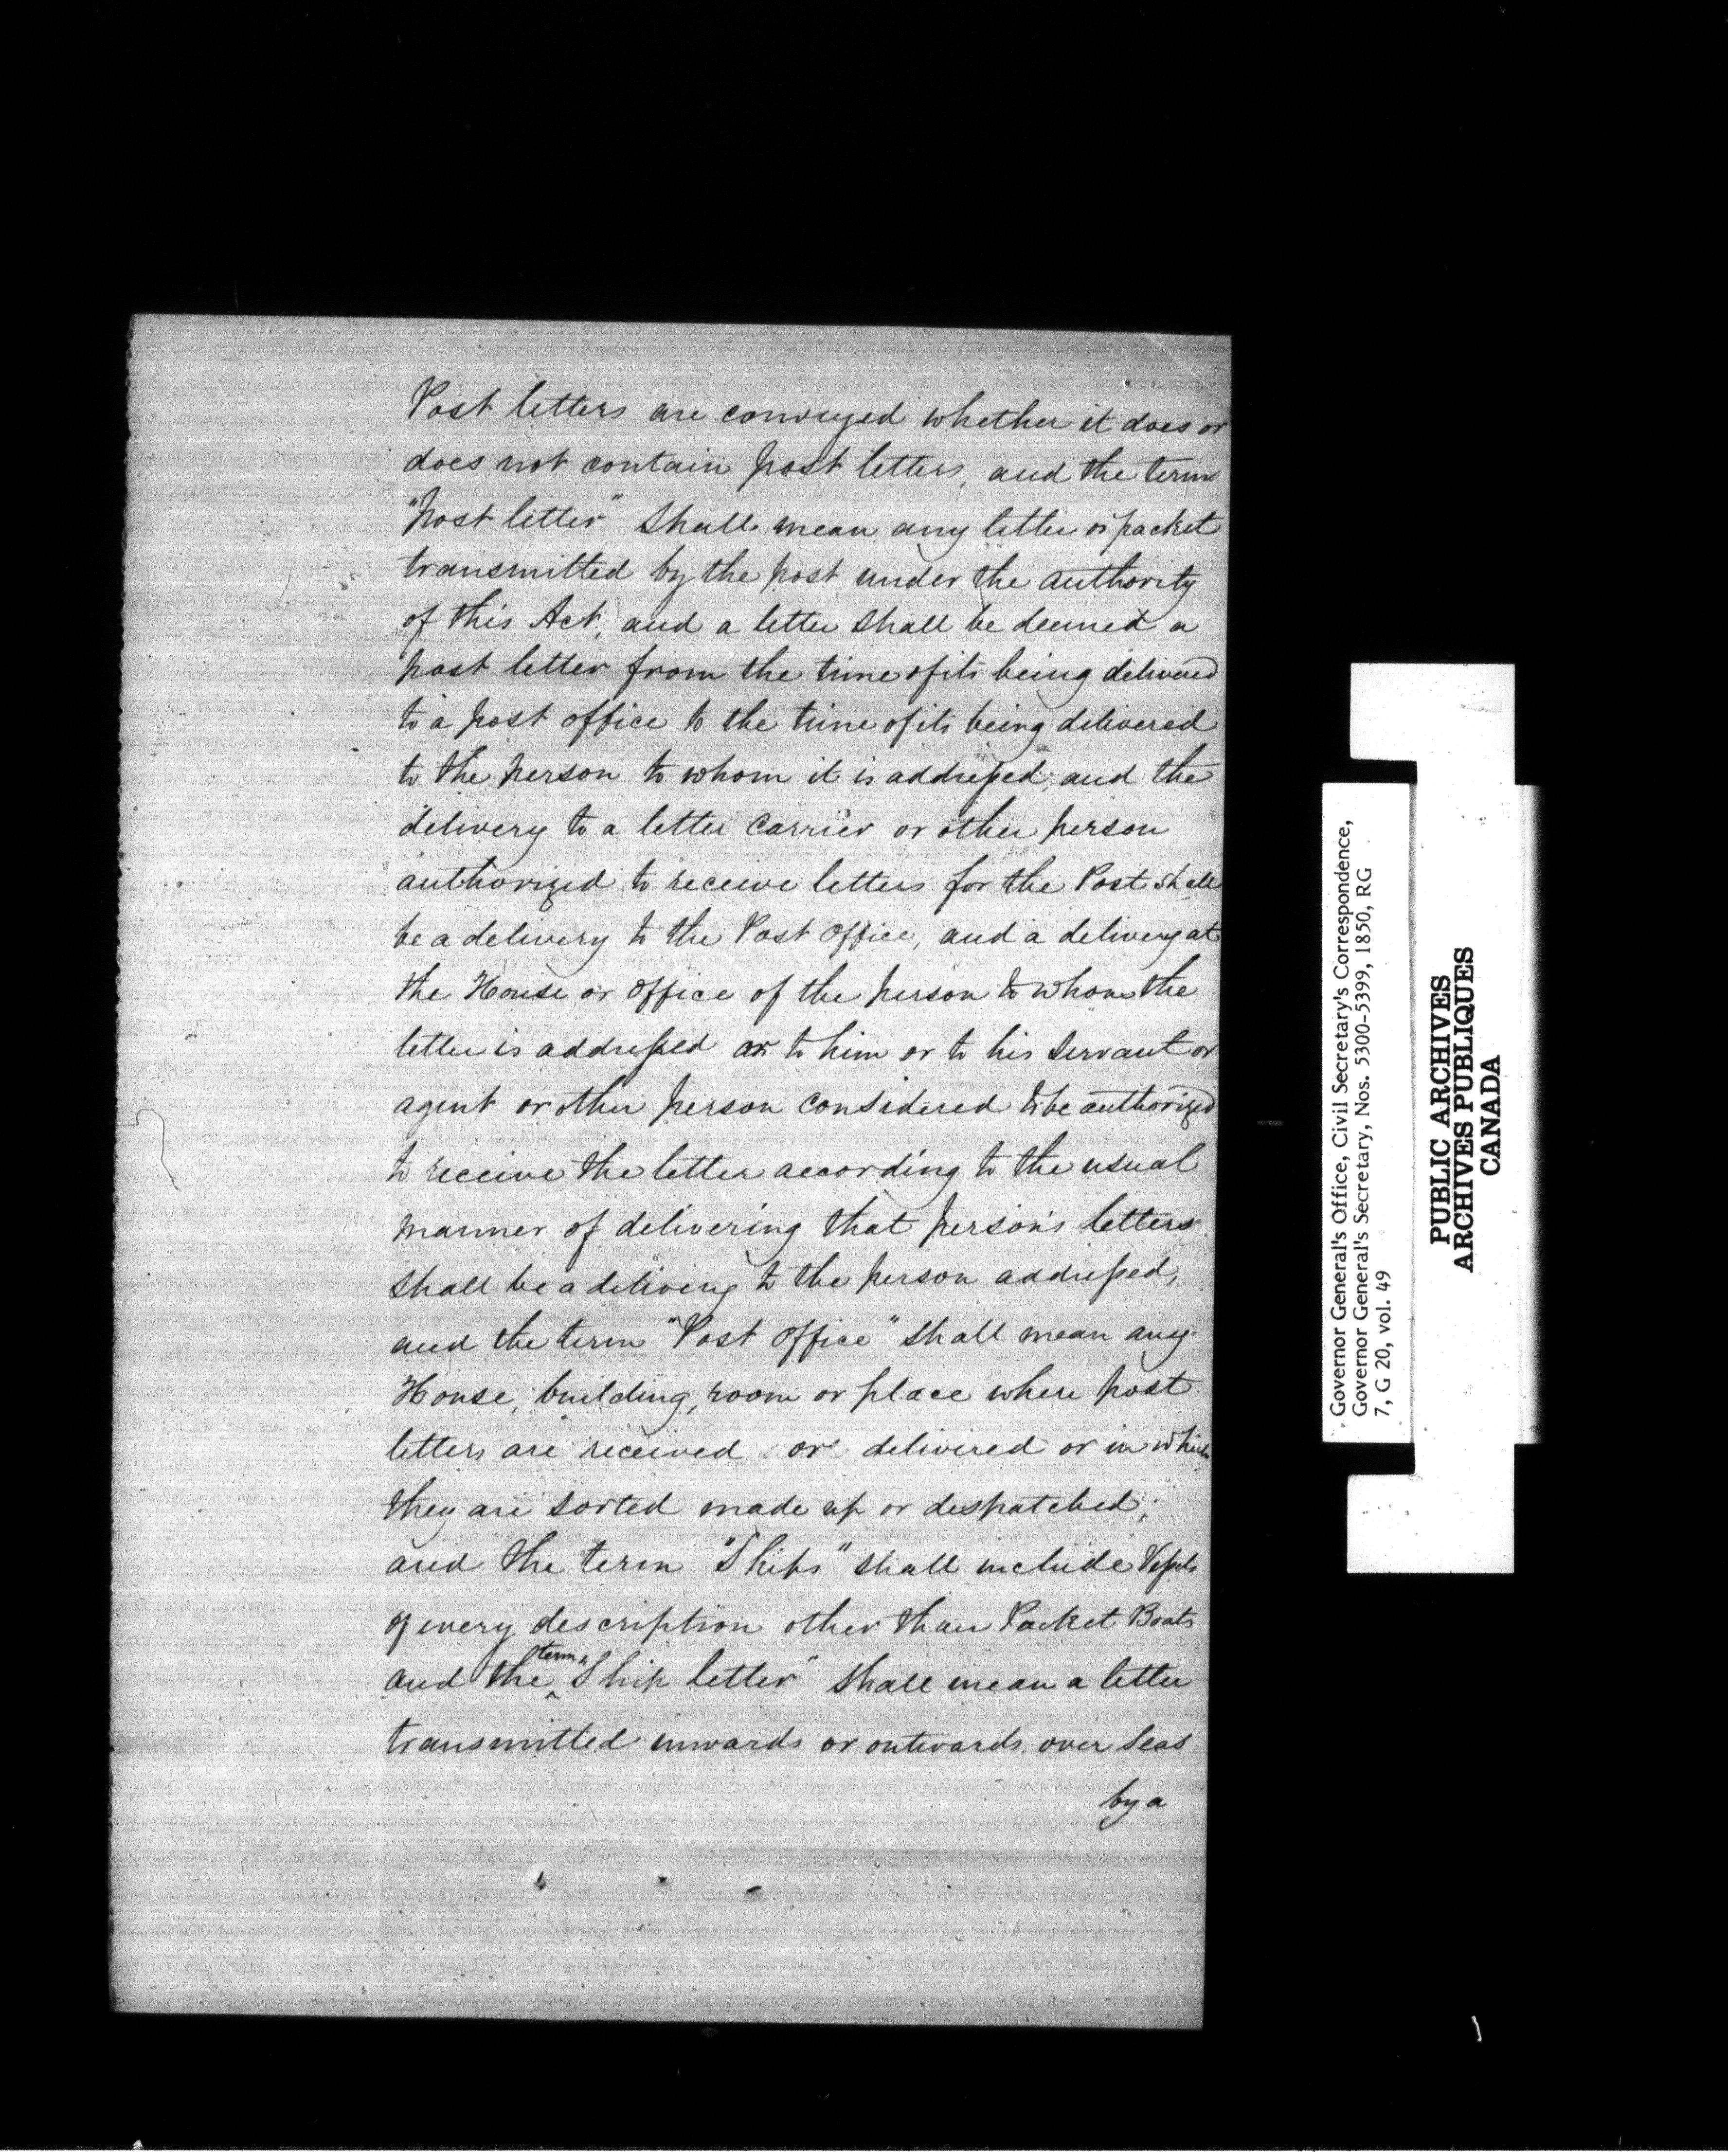 Post letters are conveyed whether it does or
does not contain post letters, and the term
"post letter" shall mean any letter or packet
transmitted by the post under the authority
of this Act, and a letter shall be deemed a
post letter from the time of its being delivered
to a post office to the time of its being delivered
to the person to whom it is addressed, and the
delivery to a letter carrier or other person
authorized to receive letters for the Post shall
be a delivery to the Post Office, and a delivery at
the House or office of the person to whom the
letter is addressed or to him or to his servant or
agent or other person considered to be authorized
to receive the letter according to the usual
manner of delivering that person's letters
shall be a delivery to the person addressed,
and the term "Post Office" shall mean any
House, building, room or place where post
letters are received or delivered or in which
they are sorted made up or despatched;
and the term "Ships" shall include Vessels
of every description other than Packet Boats
and the term "Ship letter" shall mean a letter
transmitted inwards or outwards over seas
by a
Governor General's Office, Civil Secretary's Correspondence,
Governor General's Secretary, Nos. 5300-5399, 1850, RG
7, G 20, vol. 49
PUBLIC ARCHIVES
ARCHIVES PUBLIQUES
CANADA